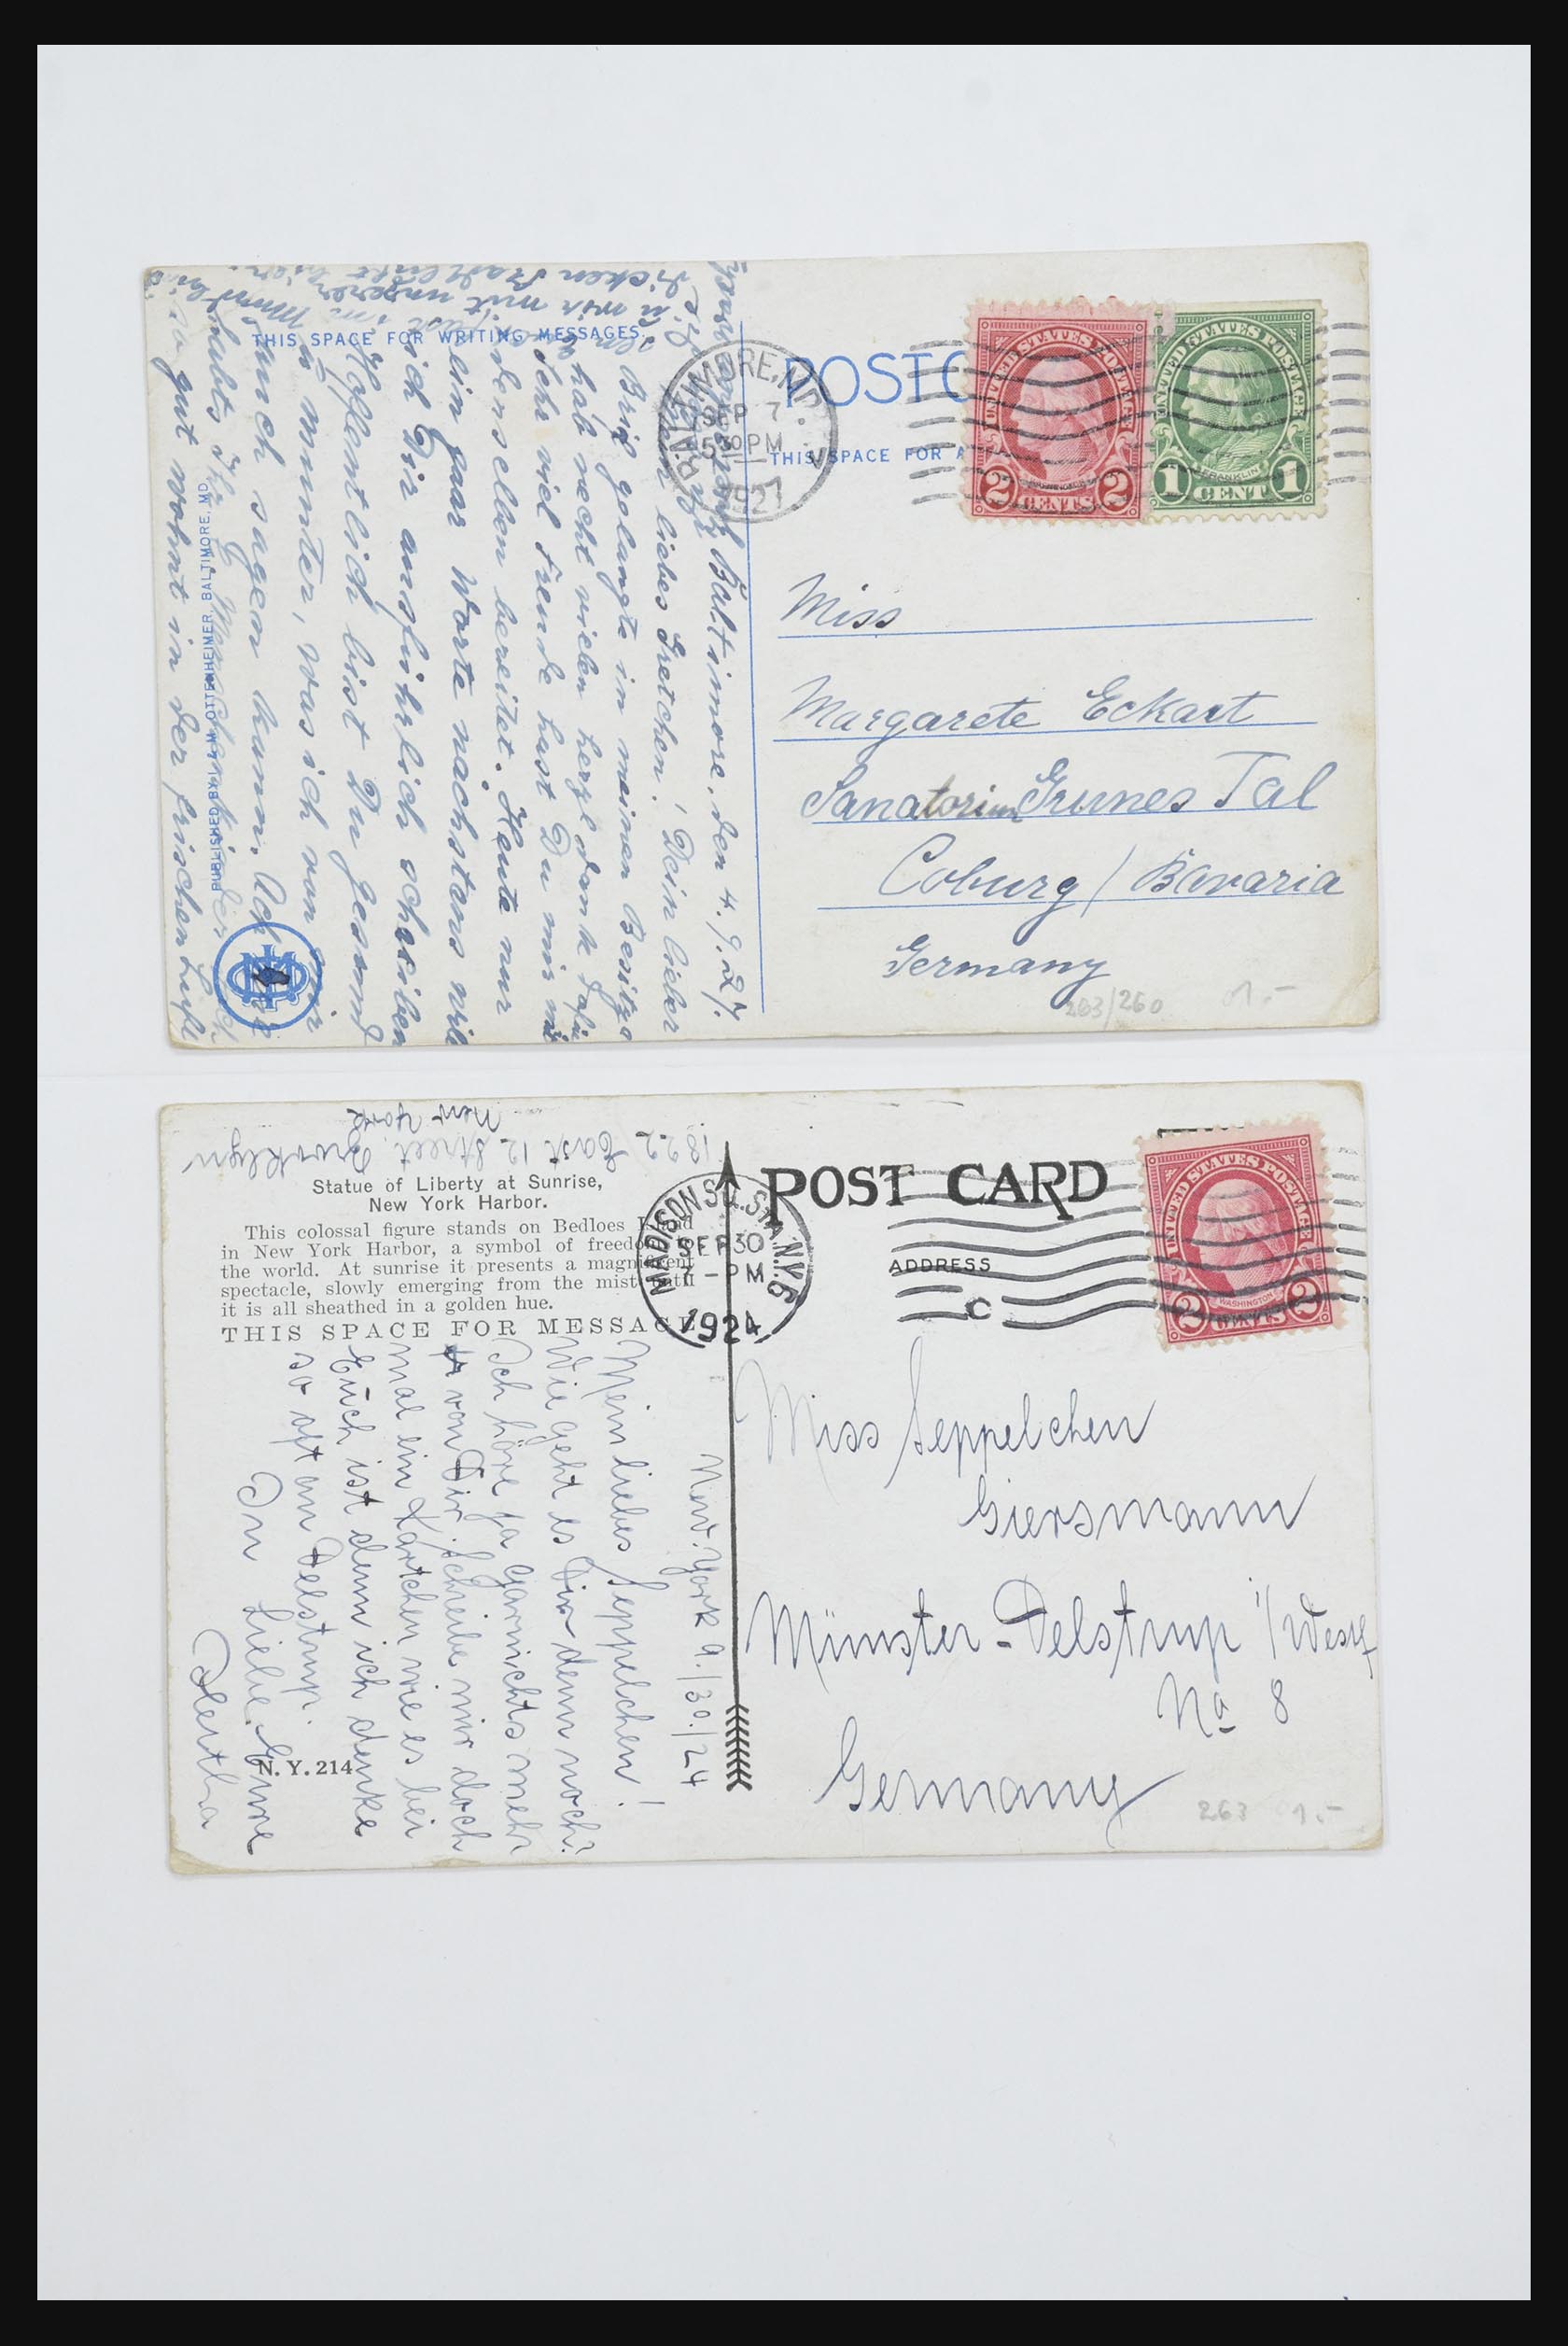 THIS SPACE FOR WRITING MESSAGES.
Baltimore, den 4.9.27.
Mein liebes Gretchen! Dein lieber
Brief gelangte in meinen Besitze
hab recht vielen herzl. dank dafür
Sehr viel Freude hast Du mir mit
denselben bereitet. Heute nur
ein paar Worte nächstens will
ich Dir ausführlich schreiben
Hoffentlich bist Du gesund
u. munter, was ich von mir
auch sagen kann. Ach
habts Ihr
so gut wohnt in der frischen Luft
u. mit unserer
dicken Stadtluft hier.
PUBLISHED BY I. & M. OTTENHEIMER, BALTIMORE, MD.
BALTIMORE, MD.
SEP 7
5 30 PM
1927
POSTC
THIS SPACE FOR A
UNITED STATES POSTAGE
2 CENTS 2
UNITED STATES POSTAGE
FRANKLIN
1 CENT 1
Miss
Margarete Eckart
Sanatorium Grünes Tal
Coburg / Bavaria
Germany
263/260 1.-
1822 East 12 Street. Brooklyn
New York
Statue of Liberty at Sunrise,
New York Harbor.
This colossal figure stands on Bedloes Island
in New York Harbor, a symbol of freedom to
the world. At sunrise it presents a magnificent
spectacle, slowly emerging from the mist until
it is all sheathed in a golden hue.
THIS SPACE FOR MESSAGE
New-York 9./30./24
Mein liebes Seppelchen!
Wie geht es Dir denn noch?
Ich höre ja garnichts mehr
von Dir. Schreibe mir doch
mal ein Kärtchen wie es bei
Euch ist denn ich denke
so oft an Delstrup.
In Liebe. Eure
Hertha
N. Y. 214
MADISON SQ. STA. N.Y. 5
SEP 30
11 - PM
1924
POST CARD
ADDRESS
C
UNITED STATES POSTAGE
WASHINGTON
2 CENTS 2
Miss Seppelchen
Giersmann
Münster-Delstrup i/Westf
No 8
Germany
263 1.-